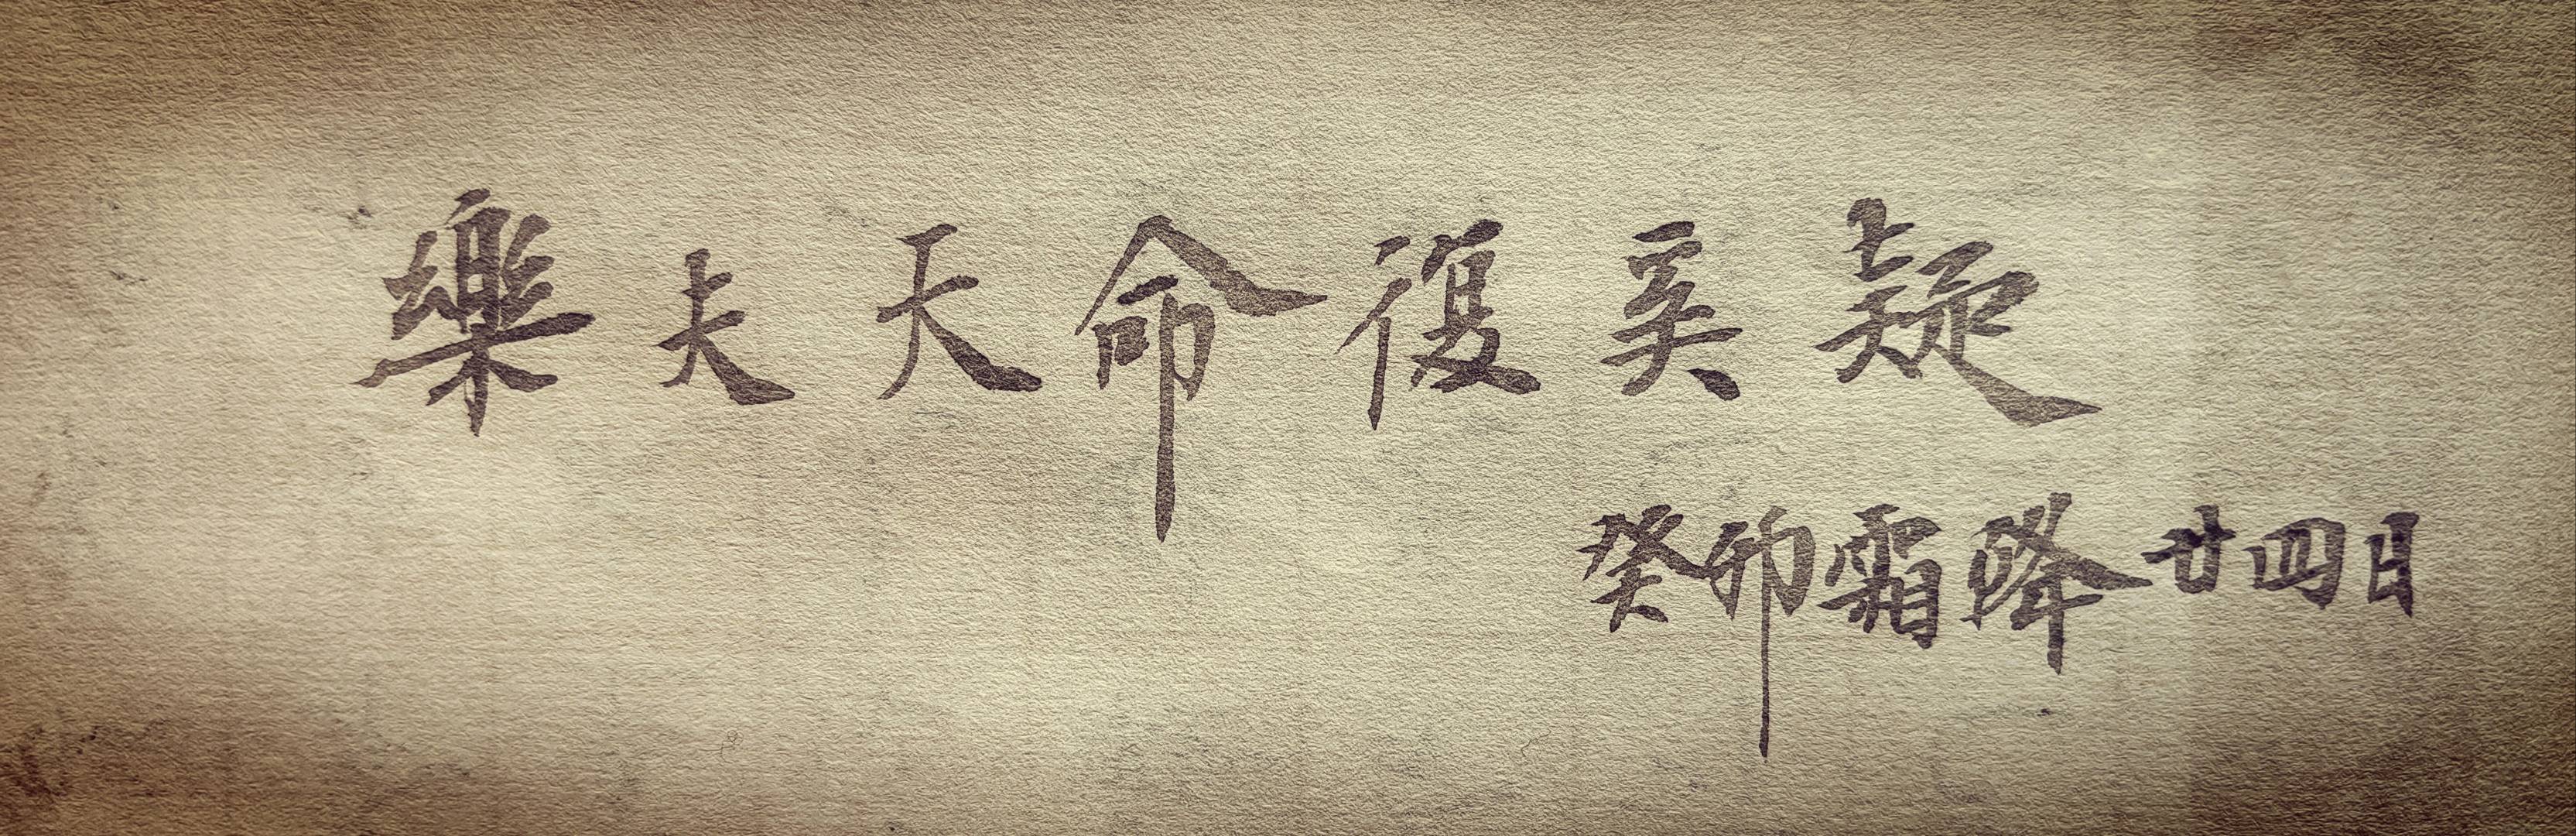 樂夫天命復奚疑
癸卯霜降廿四日